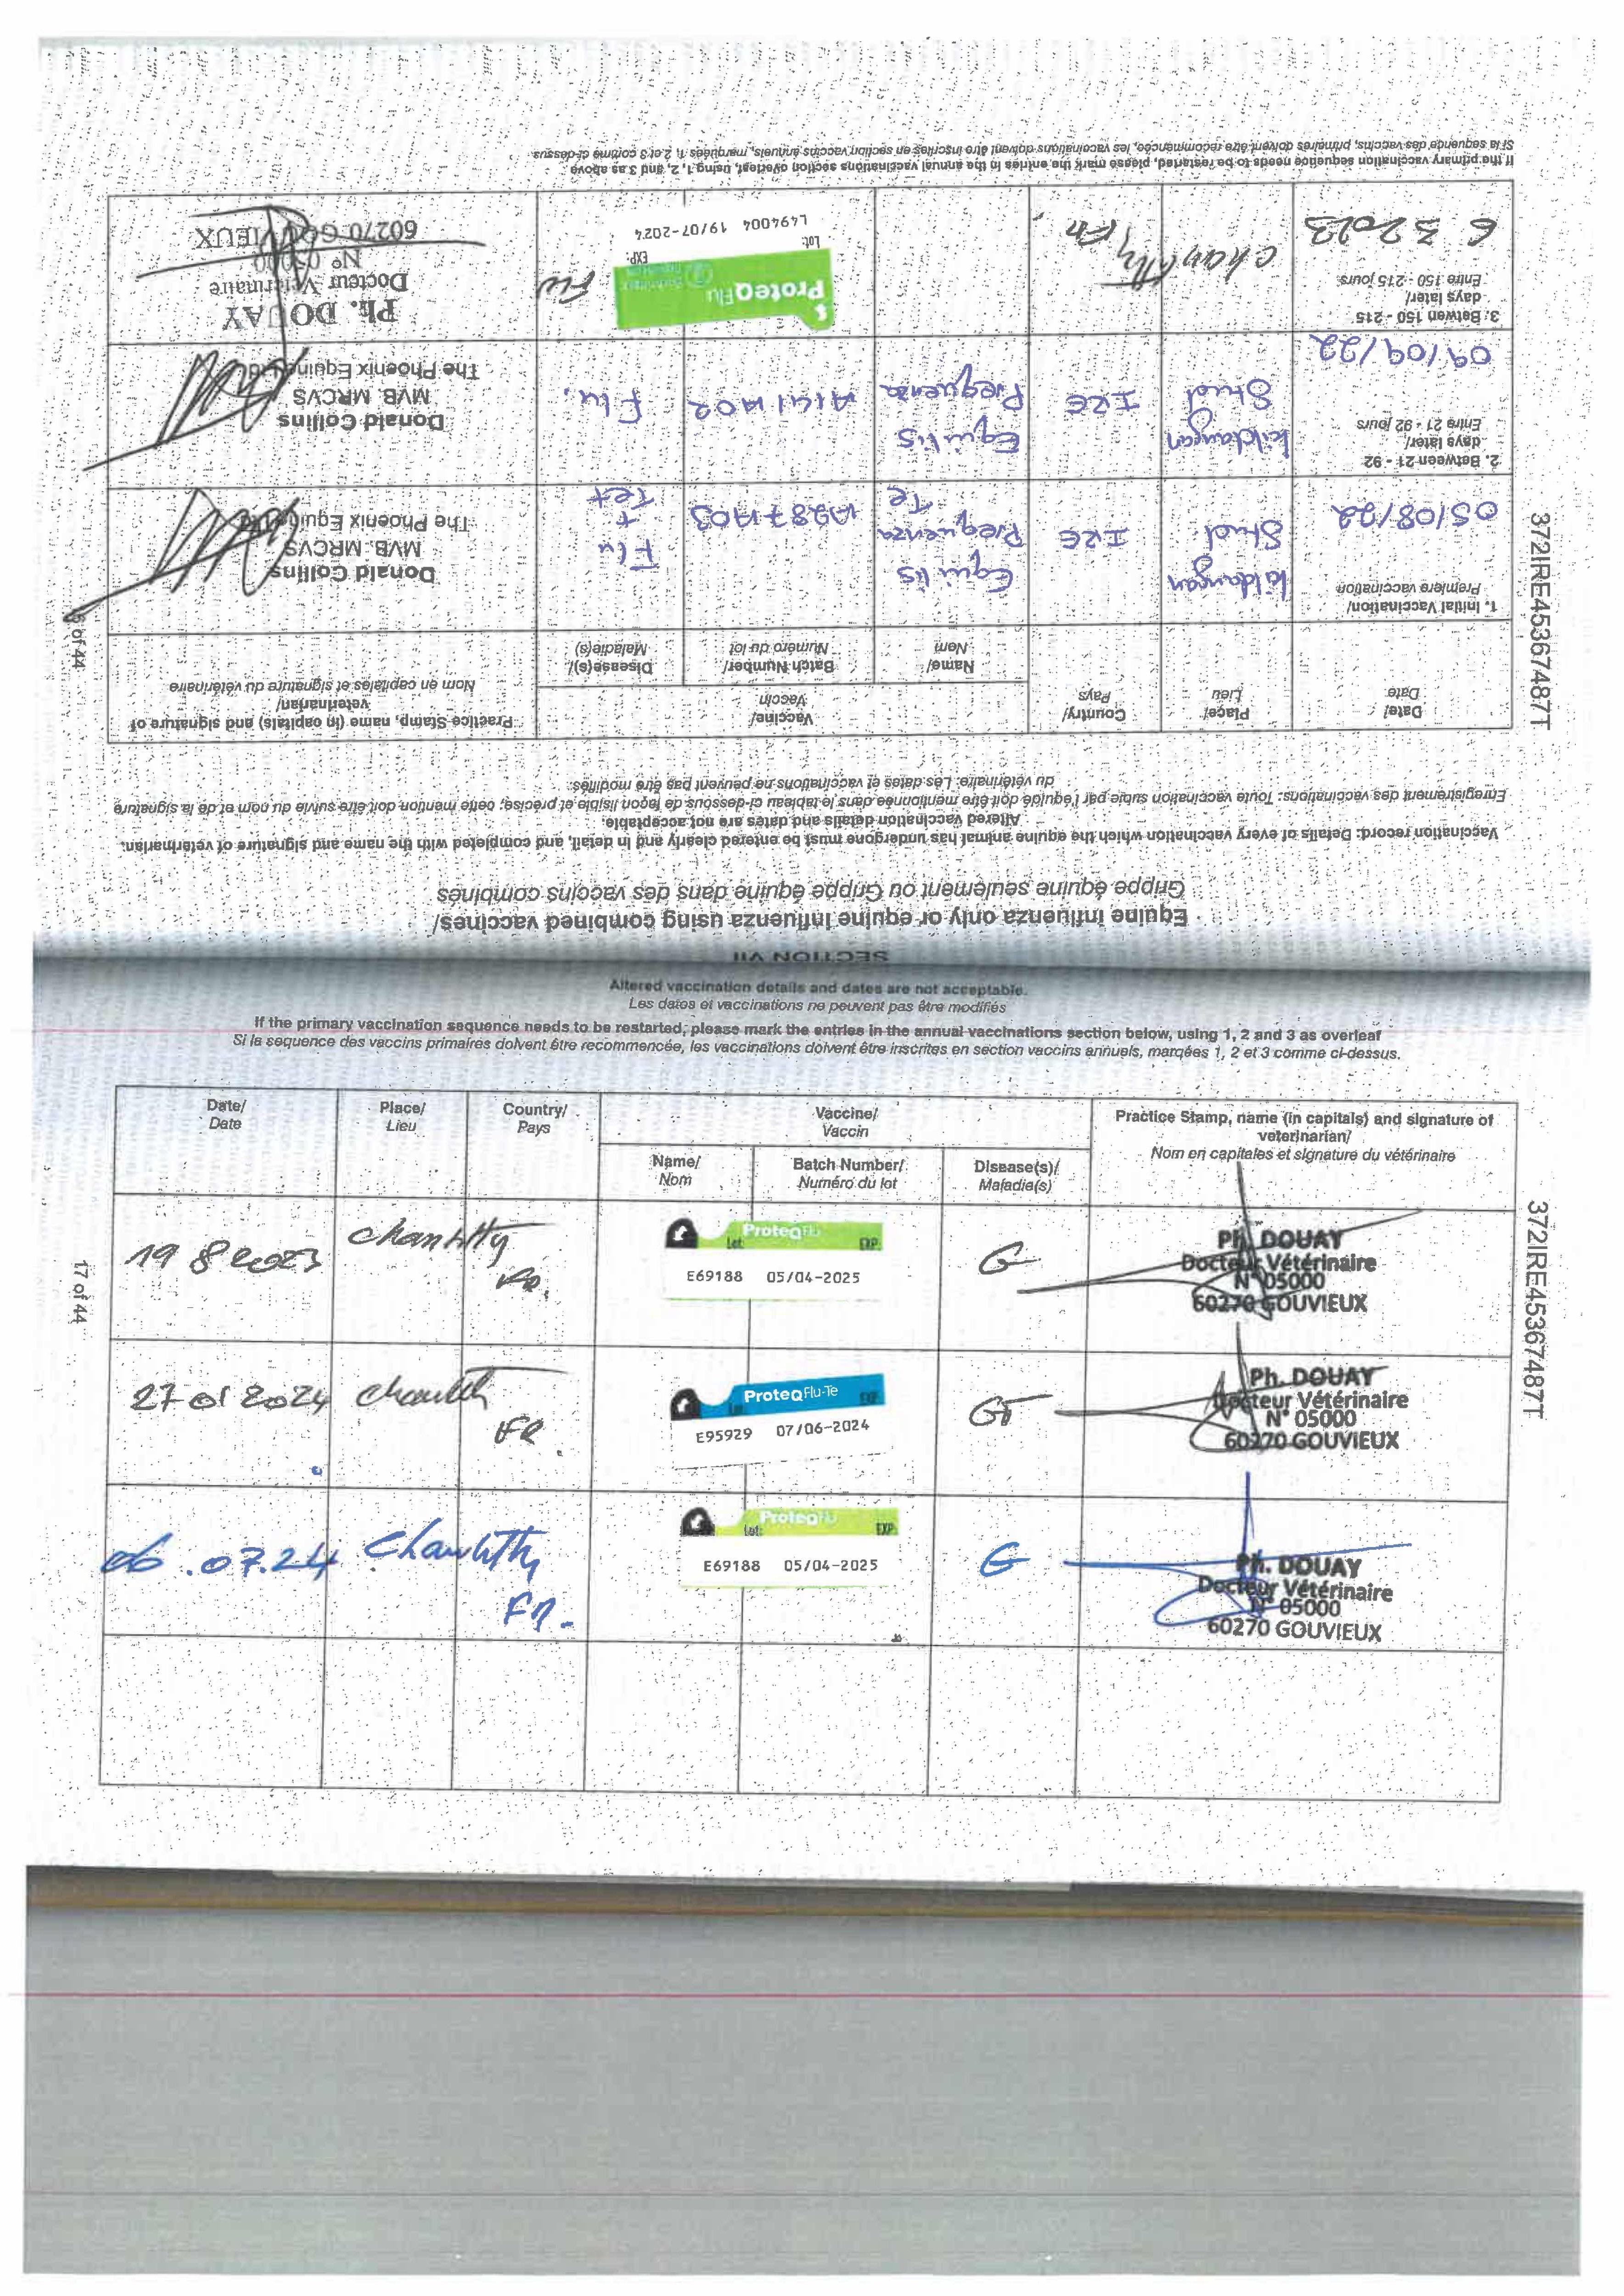 SECTION VII
Equine Influenza only or equine Influenza using combined vaccines/
Grippe équine seulement ou Grippe équine dans des vaccins combinés
Vaccination record: Details of every vaccination which the equine animal has undergone must be entered clearly and in detail, and completed with the name and signature of veterinarian.
Altered vaccination details and dates are not acceptable.
Enregistrement des vaccinations: Toute vaccination subie par l'équidé doit être mentionnée dans le tableau ci-dessous de façon lisible et précise, cette mention doit être suivie du nom et de la signature
du vétérinaire. Les dates et vaccinations ne peuvent pas être modifiés.
Date/
Date
Place/
Lieu
Country/
Pays
Vaccine/
Vaccin
Name/
Nom
Batch Number/
Numéro du lot
Disease(s)/
Maladie(s)
Practice Stamp, name (in capitals) and signature of
veterinarian/
Nom en capitales et signature du vétérinaire
1. Initial Vaccination/
Première vaccination
05/08/22
Kildangan
Stud
IRE
Equilis
Prequenza
Te
A287A03
Flu
+
Tet
Donald Collins
MVB MRCVS
The Phoenix Equine
2. Between 21 - 92
days later/
Entre 21 - 92 jours
09/09/22
Kildangan
Stud
IRE
Equilis
Prequenza
Flu.
Donald Collins
MVB MRCVS
The Phoenix Equine
3. Betwen 150 - 215
days later/
Entre 150 - 215 jours
6 3 2023
Chantilly
FR
ProteqFlu
Lot:
EXP:
L494004 19/07-2024
Flu
Ph. DOUAY
Docteur Vétérinaire
N° 05000
60270 GOUVIEUX
If the primary vaccination sequence needs to be restarted, please mark the entries in the annual vaccinations section overleaf, using 1, 2, and 3 as above
Si la sequence des vaccins, primaires doivent être recommancée, les vaccinations doivent être inscrites en section vaccins annuels, marquées 1, 2 et 3 comme ci-dessus
of 44
372IRE45367487T
Altered vaccination details and dates are not acceptable.
Les dates et vaccinations ne peuvent pas être modifiés
If the primary vaccination sequence needs to be restarted, please mark the entries in the annual vaccinations section below, using 1, 2 and 3 as overleaf
Si la sequence des vaccins primaires doivent être recommencée, les vaccinations doivent être inscrites en section vaccins annuels, marqées 1, 2 et 3 comme ci-dessus.
Date/
Date
Place/
Lieu
Country/
Pays
Vaccine/
Vaccin
Name/
Nom
Batch Number/
Numéro du lot
Disease(s)/
Maladie(s)
Practice Stamp, name (in capitals) and signature of
veterinarian/
Nom en capitales et signature du vétérinaire
19 8 2023
Chantilly
FR.
ProteqFlu
Lot: EXP:
E69188 05/04-2025
G
Ph. DOUAY
Docteur Vétérinaire
N° 05000
60270 GOUVIEUX
27 01 2024
Chantilly
FR.
ProteqFlu-Te
Lot: EXP:
E95929 07/06-2024
GT
Ph. DOUAY
Docteur Vétérinaire
N° 05000
60270 GOUVIEUX
06.07.24
Chantilly
FR.
ProteqFlu
Lot: EXP:
E69188 05/04-2025
G
Ph. DOUAY
Docteur Vétérinaire
N° 05000
60270 GOUVIEUX
17 of 44
372IRE45367487T